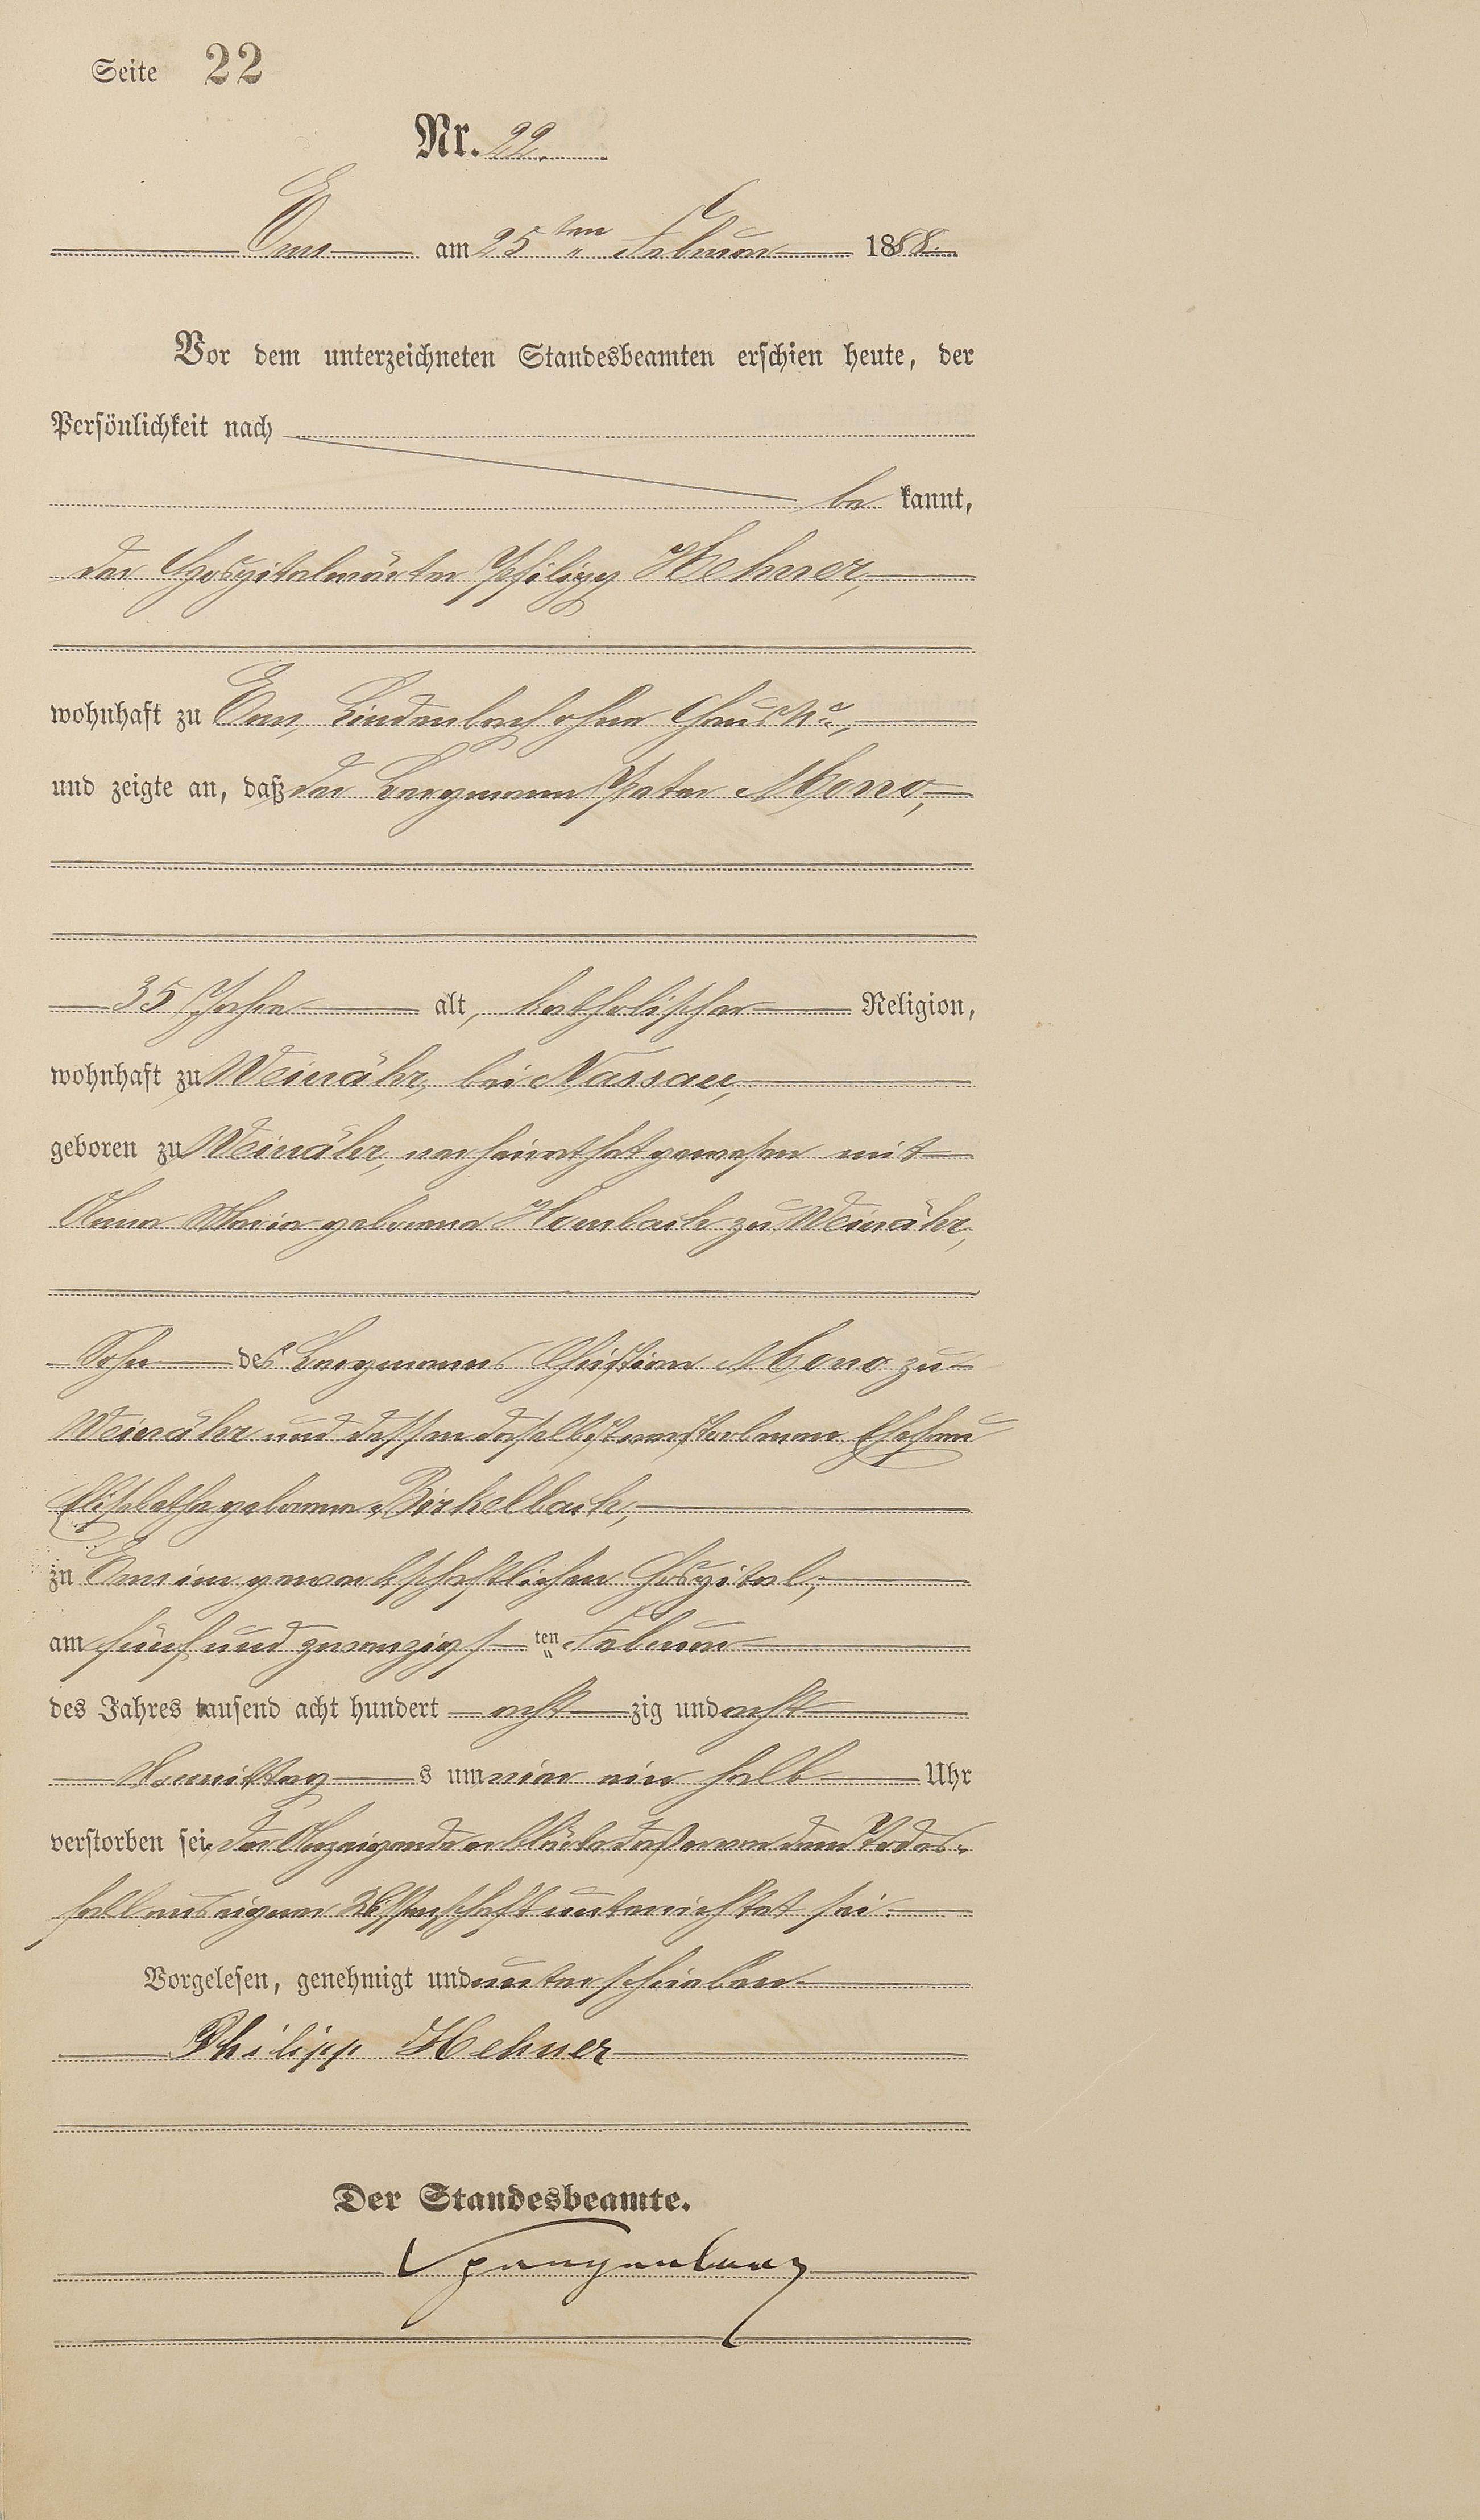 Seite 22
Nr. 22.
Ems am 25ten Februar 1888.
Vor dem unterzeichneten Standesbeamten erschien heute, der
Persönlichkeit nach
be kannt,
der Hospitalwärter Philipp Hehner,
wohnhaft zu Ems, Lindenbach ohne Haus No.,
und zeigte an, daß der Bergmann Peter Mono,
35 Jahre alt, katholischer Religion,
wohnhaft zu Weinähr, bei Nassau,
geboren zu Weinähr, verheirathet gewesen mit
Anna Maria geborene Hombach zu Weinähr,
Sohn des Bergmanns Christian Mono zu
Weinähr und dessen daselbst verstorbenen Ehefrau
Elisabetha geborene Birkelbach,
zu Ems im gewerkschaftlichen Hospital,
am fünf und zwanzigsten Februar
des Jahres tausend acht hundert acht zig und acht
Vormittags um ein halb Uhr
verstorben sei. Der Anzeigende erklärte daß er von dem Todes-
fall aus eigener Wissenschaft unterrichtet sei.
Vorgelesen, genehmigt und unterschrieben
Philipp Hehner
Der Standesbeamte.
Spangenberg